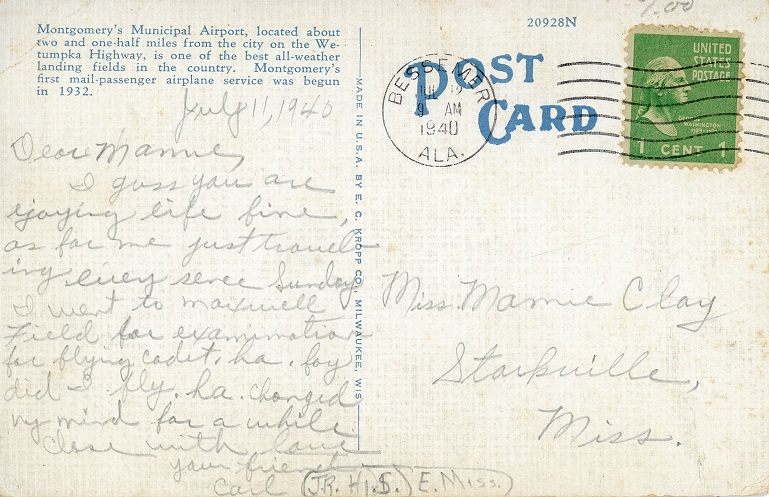 7.00
Montgomery's Municipal Airport, located about
two and one-half miles from the city on the We-
tumpka Highway, is one of the best all-weather
landing fields in the country. Montgomery's
first mail-passenger airplane service was begun
in 1932.
20928N
POST
CARD
BESSEMER
JUL 12
9 AM
1940
ALA.
UNITED
STATES
POSTAGE
GEORGE
WASHINGTON
1 CENT 1
MADE IN U.S.A. BY E. C. KROPP CO., MILWAUKEE, WIS.
July 11, 1940
Dear Mamie,
I guss you are
ejoying life fine,
as for me just travel
ing every sence Sunday
I went to maxwell
Field for examination
for flying cadet. ha. boy
did I fly. ha. changed
my mind for a while.
Close with love
your friend
Carl (J.R. H.S. E. Miss.)
Miss. Mamie Clay
Starkville,
Miss.